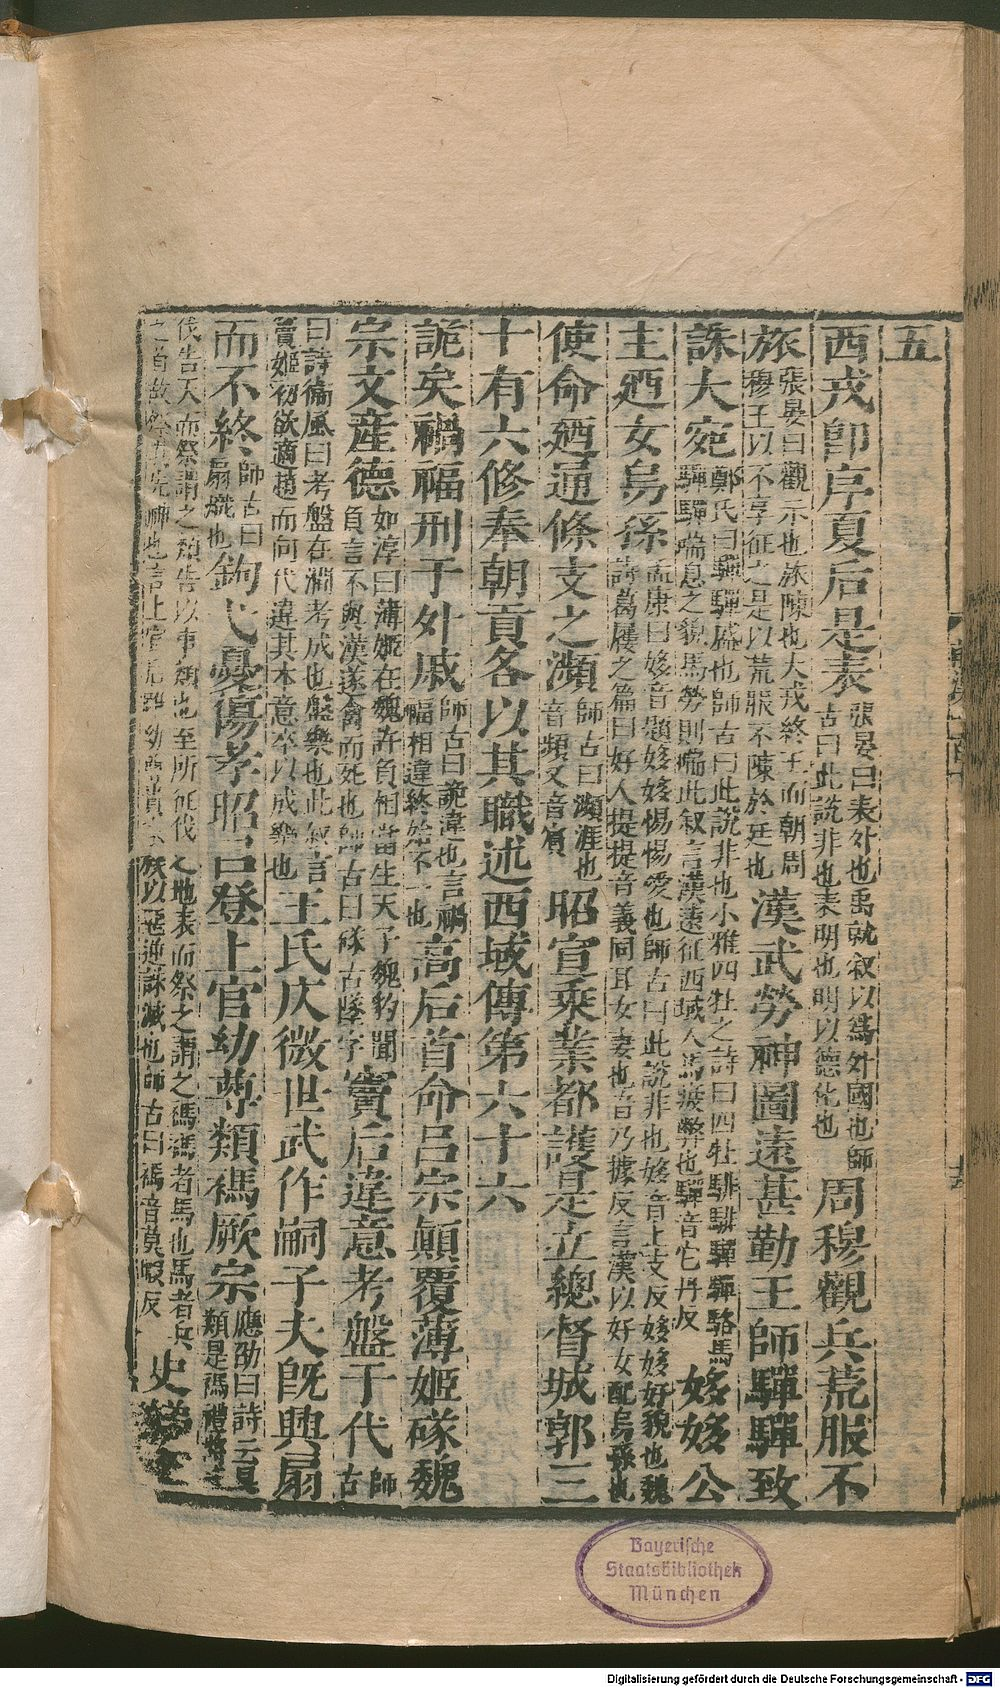 五
西戎即序夏后是表張晏曰表外也禹就敘以爲外國也師古曰此說非也表明也明以德化也周穆觀兵荒服不
旅張晏曰觀示也旅陳也犬戎終王而朝周穆王以不享征之是以荒服不陳於廷也漢武勞神圖遠甚勤王師驒驒致
誅大宛鄭氏曰驒驒盛也師古曰此說非也小雅四牡之詩曰四牡騑騑驒驒駱馬驒驒喘息之貌馬勞則喘此叙言漢遠征西域人馬疲弊也驒音它丹反姼姼公
主迺女烏孫孟康曰姼音題姼姼惕惕愛也師古曰此說非也姼音上支反姼姼好貌也魏詩葛屨之篇曰好人提提音義同耳女妻也音乃據反言漢以好女配烏孫也
使命迺通條支之瀕師古曰瀕涯也音頻又音賓昭宣乘業都護是立總督城郭三
十有六修奉朝貢各以其職述西域傳第六十六
詭矣禍福刑于外戚師古曰詭違也言禍福相違終始不一也高后首命呂宗顚覆薄姬碌魏
宗文産德如淳曰薄姬在魏許負相當生天子魏豹聞負言不與漢遂禽而死也師古曰碌古墜字竇后違意考盤于代師古
曰詩衞風曰考盤在澗考成也盤樂也此叙言竇姬初欲適趙而向代違其本意卒以成樂也王氏仄微世武作嗣子夫旣興扇
而不終師古曰扇熾也鉤弋憂傷孝昭以登上官幼尊類禡厥宗應劭曰詩云是類是禡禮將
伐告天而祭謂之類告以事類也至所征伐之地表而祭之謂之禡禡者馬也馬者兵之首故祭其先神也言上官后雖幼尊貴家族以惡逆誅滅也師古曰禡音莫暇反史
前漢一百下
Bayerische
Staatsbibliothek
München
Digitalisierung gefördert durch die Deutsche Forschungsgemeinschaft - DFG